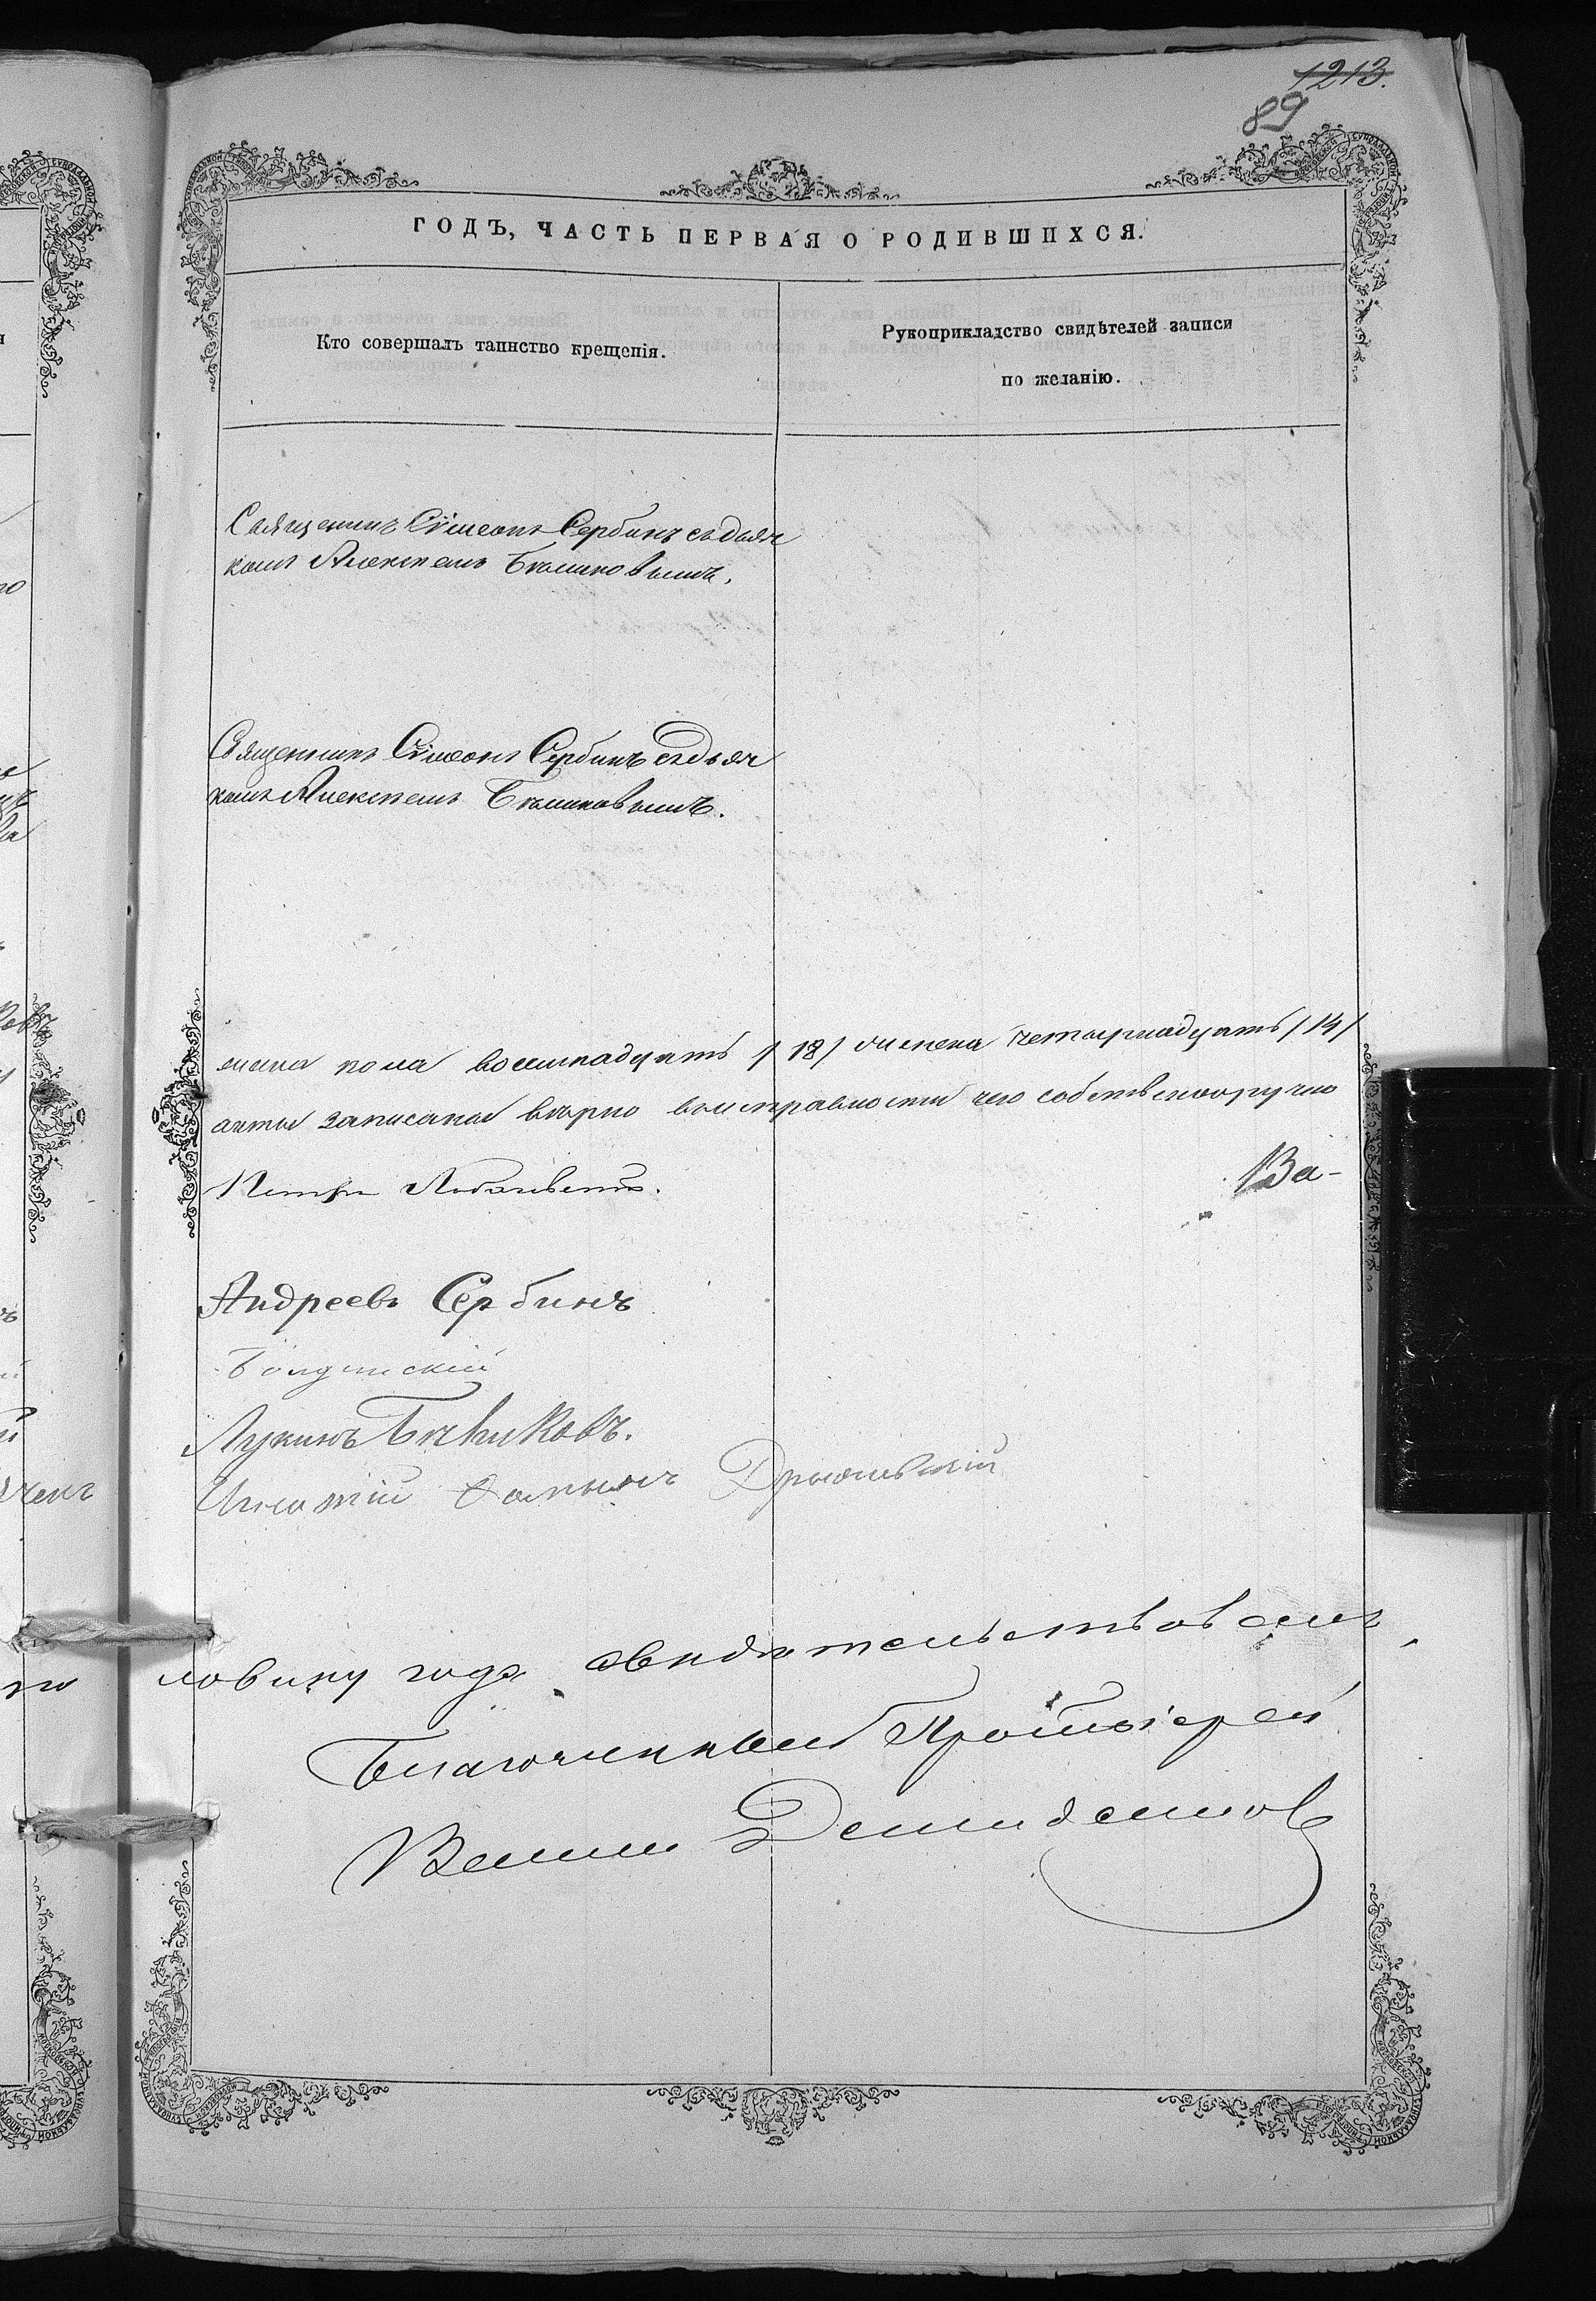 1213.
89
ГОДЪ, ЧАСТЬ ПЕРВАЯ О РОДИВШИХСЯ.
Кто совершалъ таинство крещенія.
Рукоприкладство свидѣтелей записи
по желанію.
Священникъ Сѵмеонъ Сербинъ съ дьяч
комъ Алексѣемъ Бѣликовымъ.
Священникъ Сѵмеонъ Сербинъ съ дьяч
комъ Алексѣемъ Бѣликовымъ.
пола восемнадцать /18/ женска четырнадцать /14/
акты записаны вѣрно въ исправности чего собственноручно
Петръ
Ва-
Андреевъ Сербинъ
Лукинъ Бѣликовъ.
Игнатій
ловину года свидѣтельствовалъ,
Благочинный Протоіерей
Демидентов